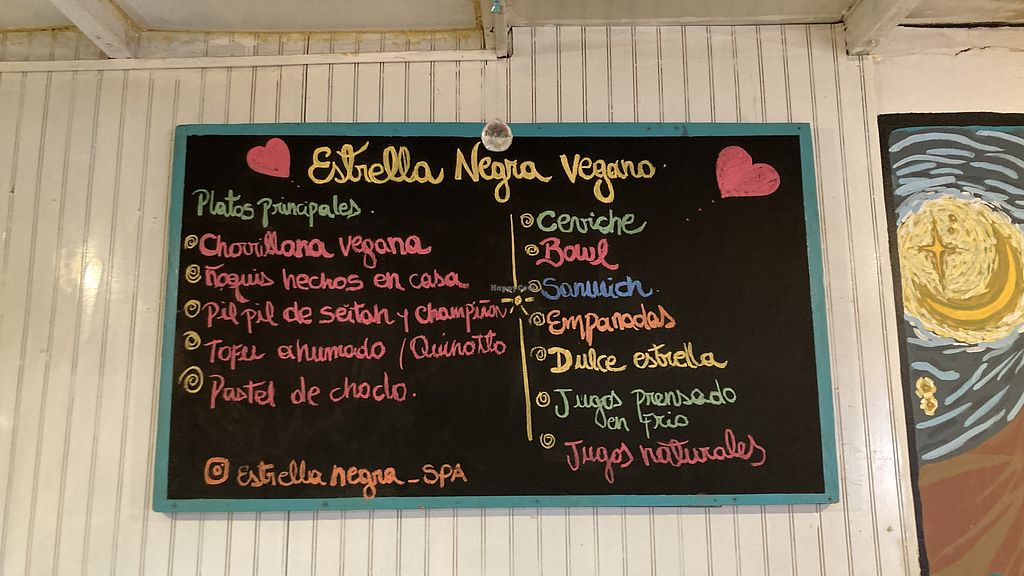 Estrella Negra Vegano.
Platos principales.
Chorrillana vegana
Ñoquis hechos en casa
Pil pil de seitan y champiñon
Tofu ahumado / Quinotto
Pastel de choclo.
Estrella negra_SPA
Ceviche
Bowl
Sanwich.
Empanadas
Dulce estrella
Jugos prensado
en frio
Jugos naturales